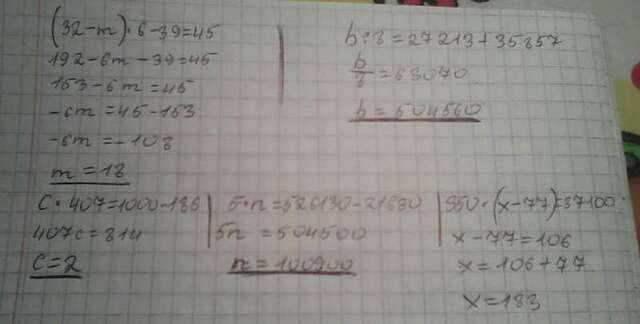 (32-m)·6-39=45
192-6m-39=45
153-6m=45
-6m=45-153
-6m=-108
m=18
b:8=27213+35857
b/8=63070
b=504560
c·407=1000-186
407c=814
c=2
5·n=526130-21630
5n=504500
n=100900
350·(x-77)=37100
x-77=106
x=106+77
x=183